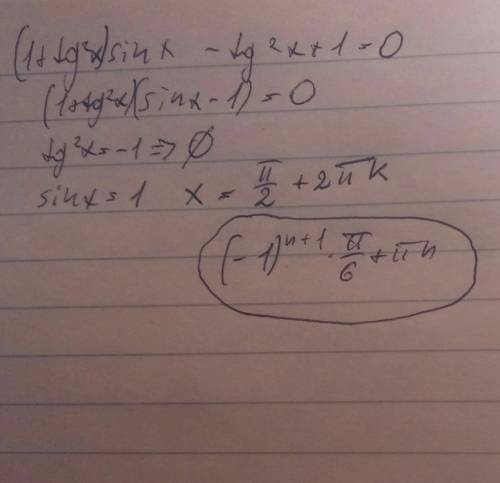 (1+tg²x)sinx - tg²x+1=0
(1+tg²x)(sinx-1)=0
tg²x=-1=>∅
sinx=1 x=π/2+2πk
(-1)ⁿ⁺¹·π/6+πn